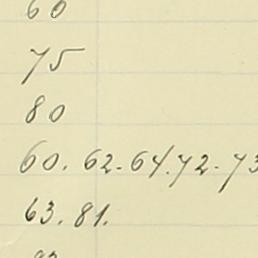 60
75
80
60. 62. 64. 72. 73
63. 81.